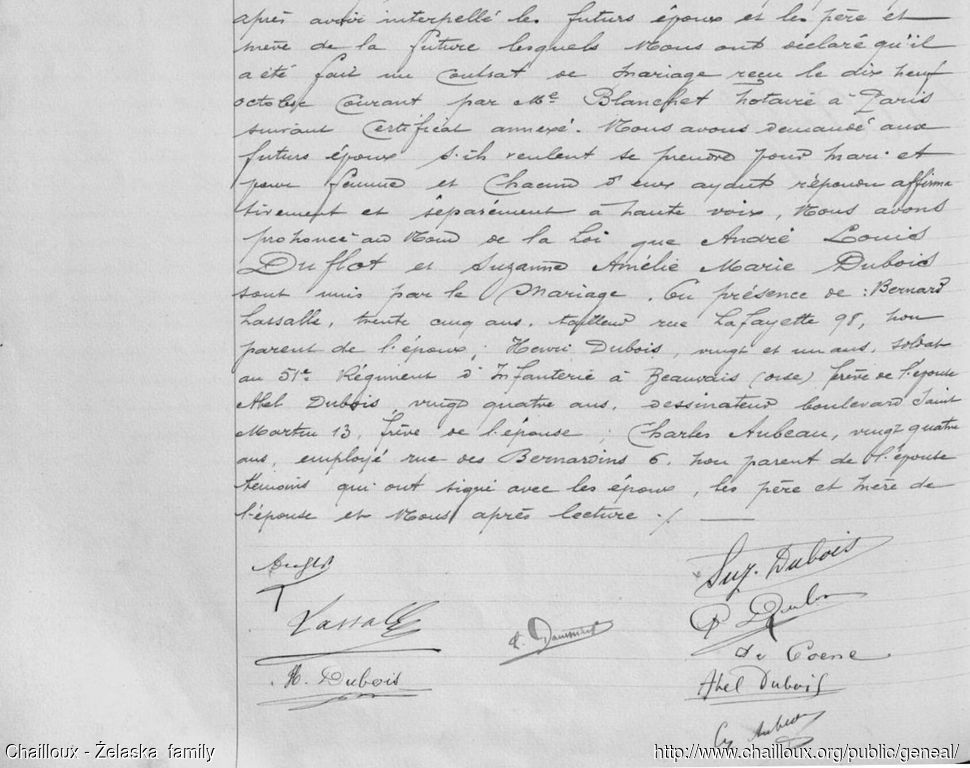 après avoir interpellé les futurs époux et les père et
mère de la future lesquels Nous ont déclaré qu'il
a été fait un contrat de mariage reçu le dix neuf
octobre courant par Me Blanchet notaire à Paris
suivant certificat annexé. Nous avons demandé aux
futurs époux s'ils veulent se prendre pour mari et
pour femme et chacun d'eux ayant répondu affirma
tivement et séparément à haute voix, Nous avons
prononcé au Nom de la Loi que André Louis
Duflot et Suzanne Amélie Marie Dubois
sont unis par le Mariage. En présence de : Bernard
Lassalle, trente cinq ans, tailleur rue Lafayette 98, non
parent de l'époux ; Henri Dubois, vingt et un ans, soldat
au 51e Régiment d'Infanterie à Beauvais (oise) frère de l'épouse
Abel Dubois, vingt quatre ans, dessinateur boulevard Saint
Martin 13, frère de l'épouse ; Charles Aubeau, vingt quatre
ans, employé rue des Bernardins 6, non parent de l'épouse
témoins qui ont signé avec les époux, les père et mère de
l'épouse et Nous après lecture ./.
Suz. Dubois
Lassalle
De Coene
H. Dubois
Abel Dubois
Chailloux - Želaska family
http://www.chailloux.org/public/geneal/